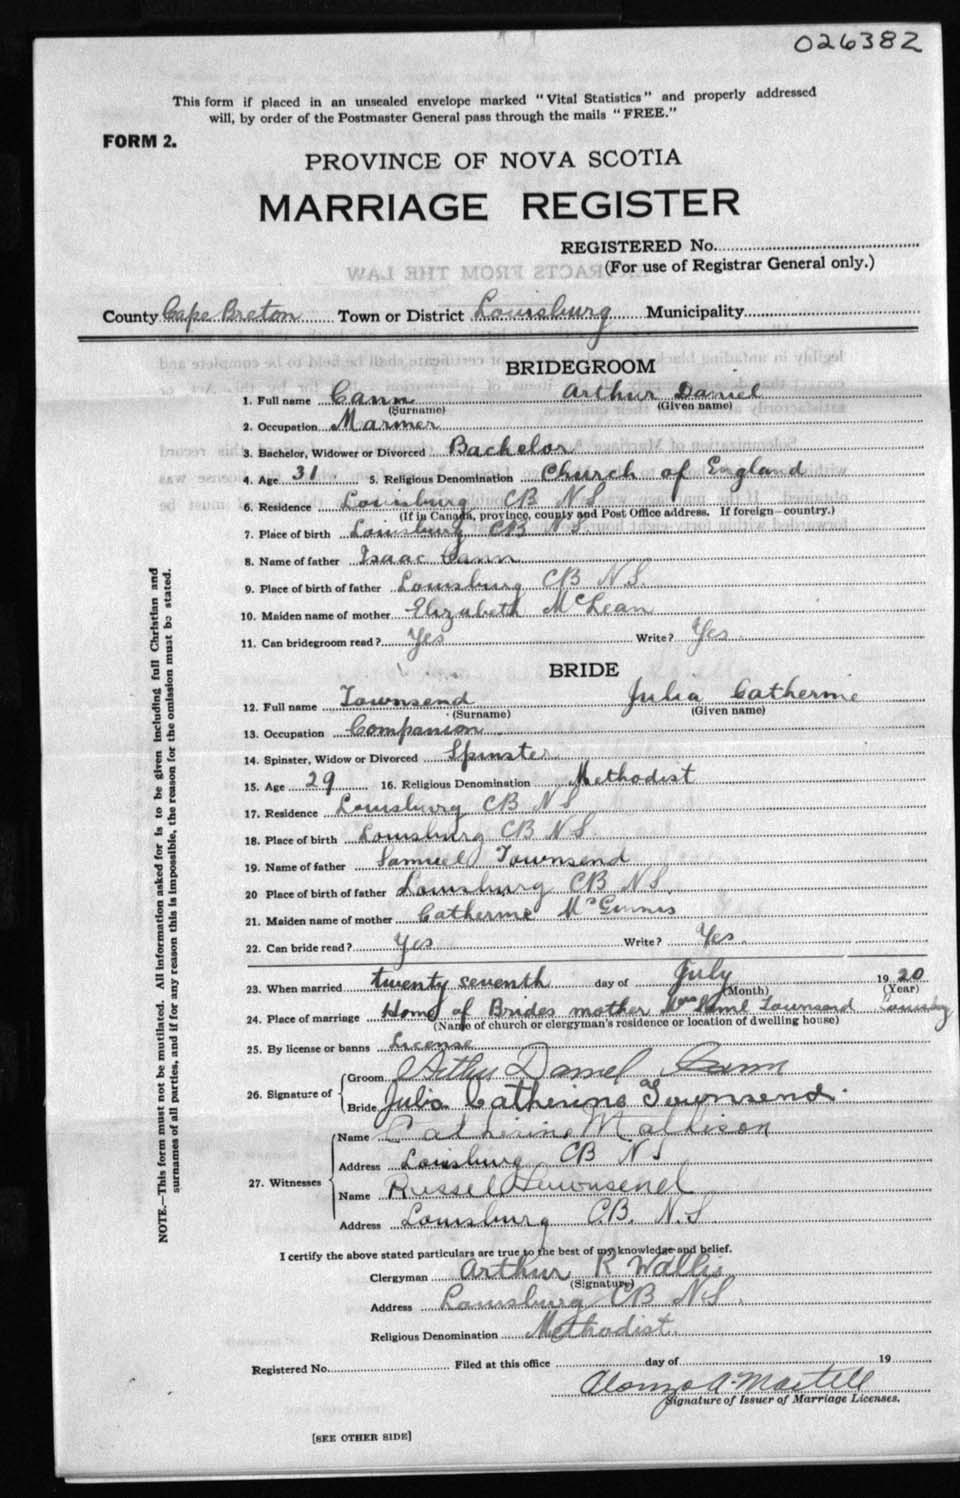 026382
This form if placed in an unsealed envelope marked "Vital Statistics" and properly addressed
will, by order of the Postmaster General pass through the mails "FREE."
FORM 2.
PROVINCE OF NOVA SCOTIA
MARRIAGE REGISTER
REGISTERED No.
(For use of Registrar General only.)
County Cape Breton Town or District Louisburg Municipality
BRIDEGROOM
1. Full name Cann Arthur Daniel
(Surname) (Given name)
2. Occupation Marmer
3. Bachelor, Widower or Divorced Bachelor
4. Age 31 5. Religious Denomination Church of England
6. Residence Louisburg CB NS
(If in Canada, province, county and Post Office address. If foreign—country.)
7. Place of birth Louisburg CB NS
8. Name of father Isaac Cann
9. Place of birth of father Louisburg CB NS.
10. Maiden name of mother Elizabeth McLean
11. Can bridegroom read? Yes Write? Yes
BRIDE
12. Full name Townsend Julia Catherine
(Surname) (Given name)
13. Occupation Companion
14. Spinster, Widow or Divorced Spinster
15. Age 29 16. Religious Denomination Methodist
17. Residence Louisburg CB NS
18. Place of birth Louisburg CB NS.
19. Name of father Samuel Townsend
20 Place of birth of father Louisburg CB NS.
21. Maiden name of mother Catherine McGinnis
22. Can bride read? Yes Write? Yes
23. When married twenty seventh day of July 1920
(Month) (Year)
24. Place of marriage Home of Brides mother Mrs Saml Townsend Louisburg
(Name of church or clergyman's residence or location of dwelling house)
25. By license or banns License
26. Signature of Groom Arthur Daniel Cann
Bride Julia Catherine Townsend.
27. Witnesses Name Catherine Mathison
Address Louisburg CB NS
Name Russel Townsend
Address Louisburg C.B. N.S
I certify the above stated particulars are true to the best of my knowledge and belief.
Clergyman Arthur R Wallis
(Signature)
Address Louisburg CB NS.
Religious Denomination Methodist.
Registered No. Filed at this office day of 19
Alonzo A. Martell
Signature of Issuer of Marriage Licenses.
[SEE OTHER SIDE]
NOTE.—This form must not be mutilated. All information asked for is to be given including full Christian and
surnames of all parties, and if for any reason this is impossible, the reason for the omission must be stated.